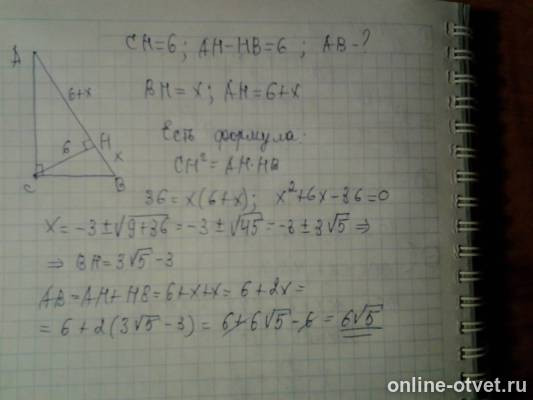 CH=6; AH-HB=6; AB-?
A
6+x
BH=x; AH=6+x
H
6
x
C
B
Есть формула:
CH²=AH·HB
36=x(6+x); x²+6x-36=0
x=-3±√9+36=-3±√45=-3±3√5⇒
⇒BH=3√5-3
AB=AH+HB=6+x+x=6+2x=
=6+2(3√5-3)=6+6√5-6=6√5
online-otvet.ru